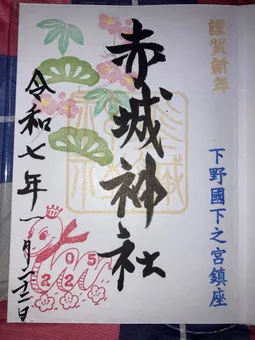 謹賀新年
下野國下之宮鎮座
赤城神社
令和七年一月
2025